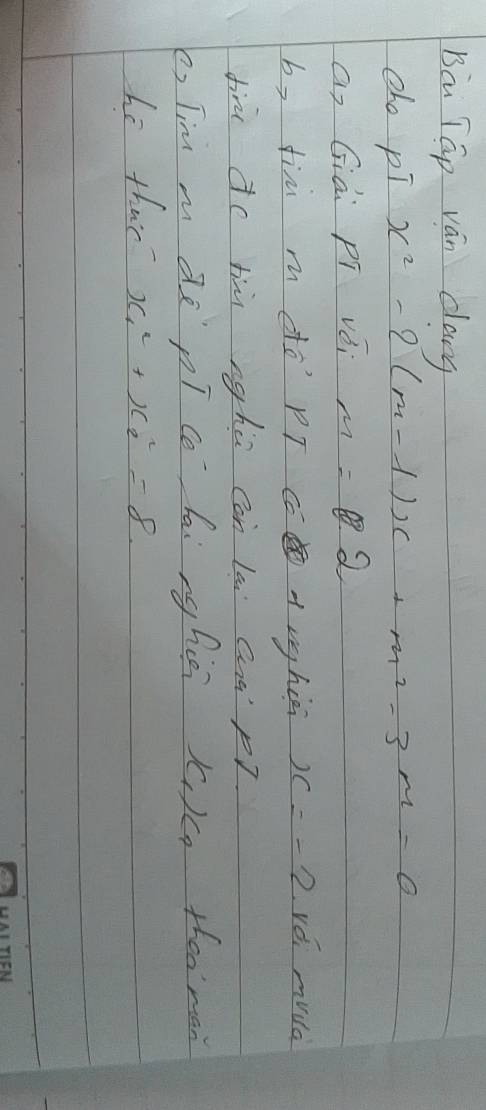 Bài Tập vận dụng
cho pT x² - 2(m-1)x + m² - 3m = 0
a, Giải pT với m = 2
b, tìm m để PT có 1 nghiệm x = -2. với m vừa
tìm đc tìm nghiệ còn lại của pT.
c, Tìm m để pT có hai nghiệm x₁, x₂ thoả mãn
hệ thức x₁² + x₂² = 8.
HẢI TIẾN